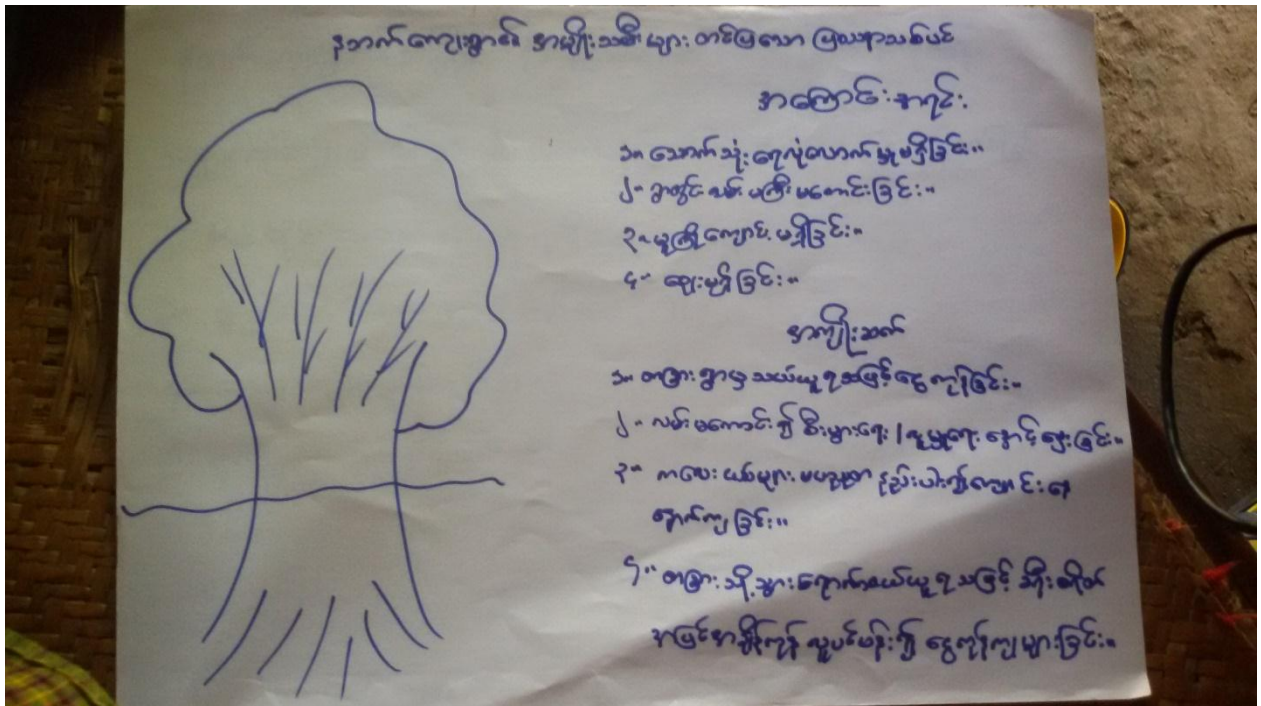 ကျေးရွာ၏ အမျိုးသမီးများ တင်ပြသော ပြဿနာသစ်ပင်
အကြောင်းအရင်း
၁။ သောက်သုံးရေလုံလောက်မှုမရှိခြင်း။
၂။ ရွာတွင်းလမ်း မကောင်းခြင်း။
၃။ မူကြိုကျောင်း မရှိခြင်း။
၄။ ဈေးမရှိခြင်း။
အကျိုးဆက်
၁။ တခြားရွာမှ သယ်ယူရသဖြင့် ငွေကုန်ခြင်း။
၂။ လမ်းမကောင်း၍ စီးပွားရေး / လူမှုရေး နှောင့်နှေးခြင်း။
၃။ ကလေးငယ်များ ပညာ နည်းပါး၍ ကျောင်းနေ
နောက်ကျခြင်း။
၄။ တခြားသို့သွားရောက်ဝယ်ယူရသဖြင့်
အပြင်အချိန်ကုန် လူပင်ပန်း၍ ငွေကုန်ကျများခြင်း။